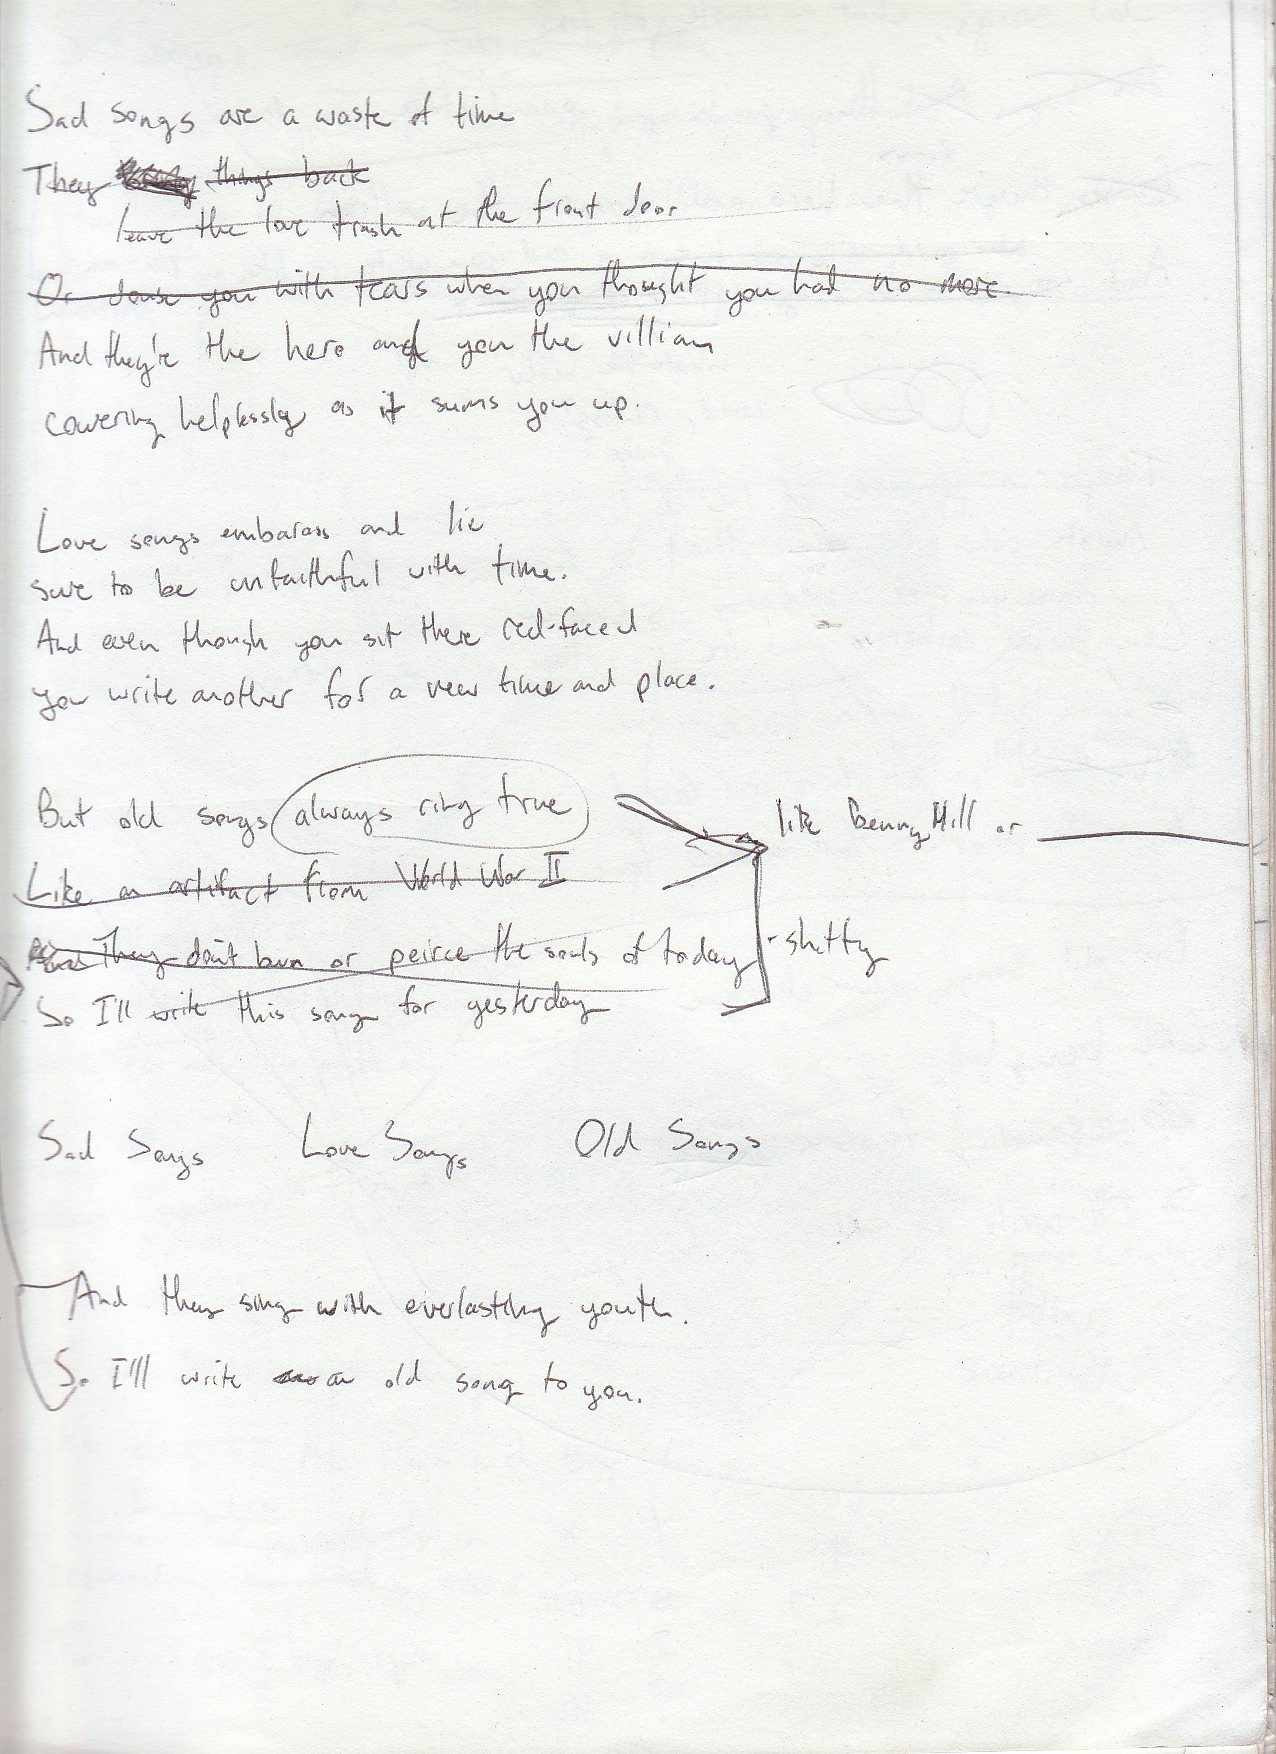 Sad songs are a waste of time
They things back
leave the love trash at the front door
Or douse you with tears when you thought you had no more.
And they're the hero and you the villian
cowering helplessly as it sums you up.
Love songs embarass and lie
sure to be unfaithful with time.
And even though you sit there red-faced
you write another for a new time and place.
But old songs always ring true
like Benny Hill or
Like an artifact from World War II
They don't burn or peirce the souls of today
- shitty
So I'll write this song for yesterday
Sad Songs Love Songs Old Songs
And they sing with everlasting youth.
So I'll write an old song to you.